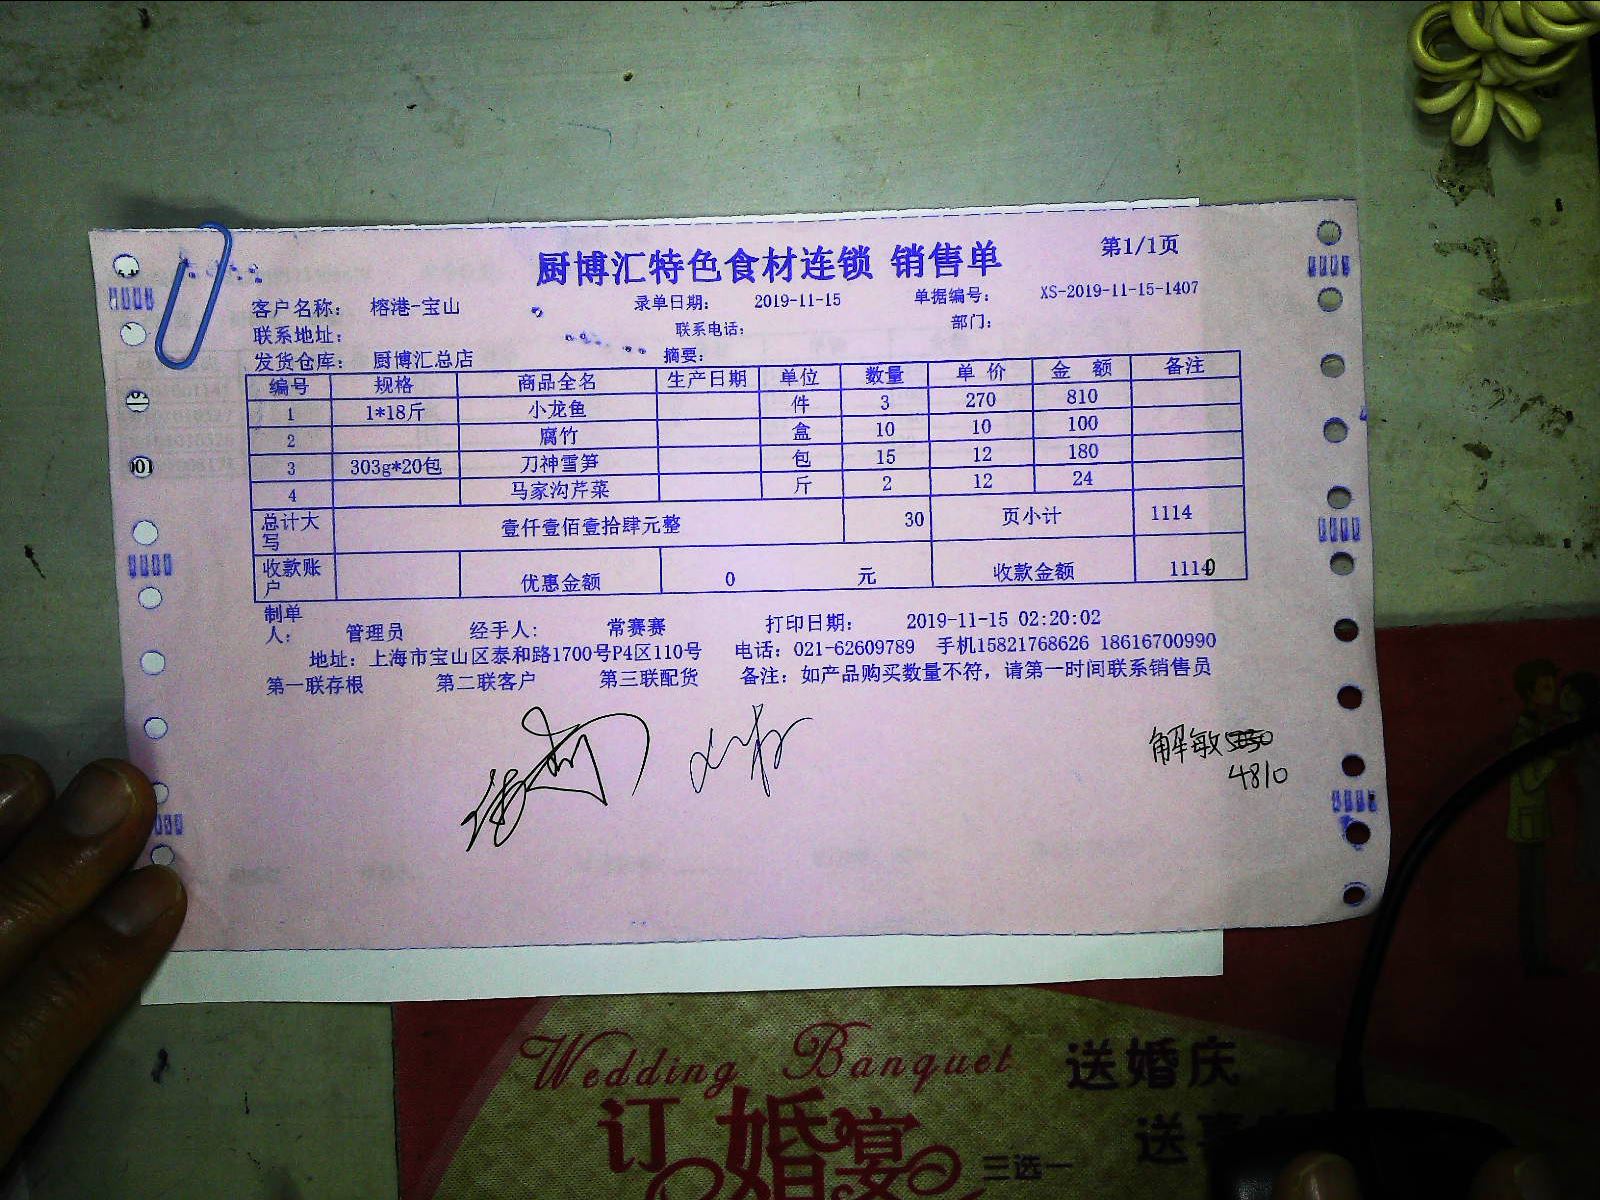 厨博汇特色食材连锁 销售单 第1/1页
客户名称: 榕港-宝山 录单日期: 2019-11-15 单据编号: XS-2019-11-15-1407
联系地址: 联系电话: 部门:
发货仓库: 厨博汇总店 摘要:
编号 规格 商品全名 生产日期 单位 数量 单 价 金 额 备注
1 1*18斤 小龙鱼 件 3 270 810
2 腐竹 盒 10 10 100
3 303g*20包 刀神雪笋 包 15 12 180
4 马家沟芹菜 斤 2 12 24
总计大写 壹仟壹佰壹拾肆元整 30 页小计 1114
收款账户 优惠金额 0 元 收款金额 1114
制单人: 管理员 经手人: 常赛赛 打印日期: 2019-11-15 02:20:02
地址: 上海市宝山区泰和路1700号P4区110号 电话: 021-62609789 手机15821768626 18616700990
第一联存根 第二联客户 第三联配货 备注: 如产品购买数量不符,请第一时间联系销售员
解敏
4810
Wedding Banquet 送婚庆
订婚宴 三选一 送